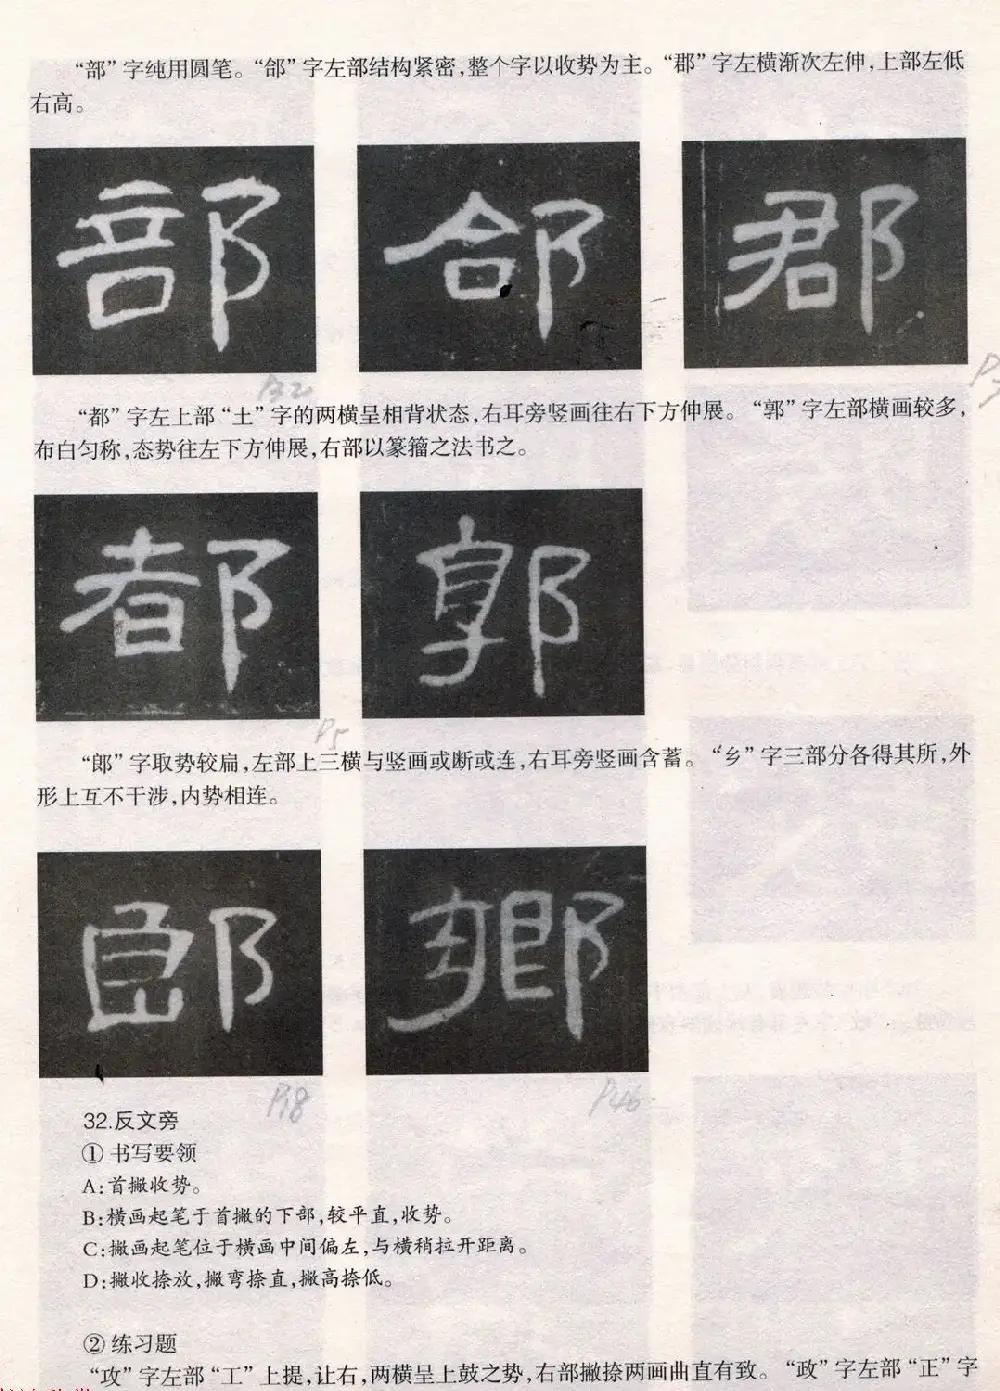 “部”字纯用圆笔。“郃”字左部结构紧密,整个字以收势为主。“郡”字左横渐次左伸,上部左低
右高。
部 郃 郡
P2
“都”字左上部“土”字的两横呈相背状态,右耳旁竖画往右下方伸展。“郭”字左部横画较多,
布白匀称,态势往左下方伸展,右部以篆籀之法书之。
都 郭
P5
“郎”字取势较扁,左部上三横与竖画或断或连,右耳旁竖画含蓄。“乡”字三部分各得其所,外
形上互不干涉,内势相连。
郎 鄉
P18 P46
32.反文旁
① 书写要领
A:首撇收势。
B:横画起笔于首撇的下部,较平直,收势。
C:撇画起笔位于横画中间偏左,与横稍拉开距离。
D:撇收捺放,撇弯捺直,撇高捺低。
② 练习题
“攻”字左部“工”上提,让右,两横呈上鼓之势,右部撇捺两画曲直有致。“政”字左部“正”字